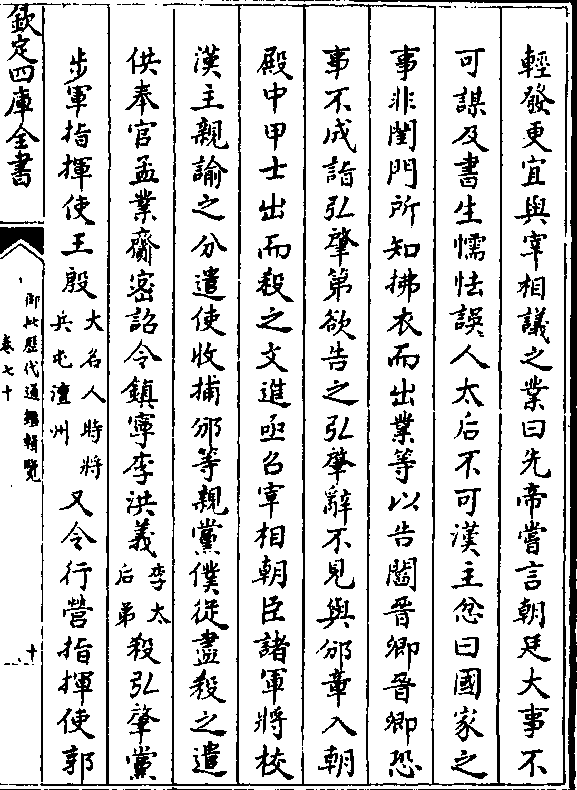 輕發更宜與宰相議之業曰先帝嘗言朝廷大事不
可謀及書生懦怯誤人太后不可漢主忿曰國家之
事非閨門所知拂衣而出業等以告閻晉卿晉卿恐
事不成詣弘肇第欲告之弘肇辭不見與邠章入朝
殿中甲士出而殺之文進亟召宰相朝臣諸軍將校
漢主親諭之分遣使收捕邠等親黨僕從盡殺之遣
供奉官孟業齎密詔令鎮寧李洪義李太后弟殺弘肇黨
步軍指揮使王殷大名人時將兵屯澶州又令行營指揮使郭
欽定四庫全書
御批歷代通鑑輯覽
卷七十
十